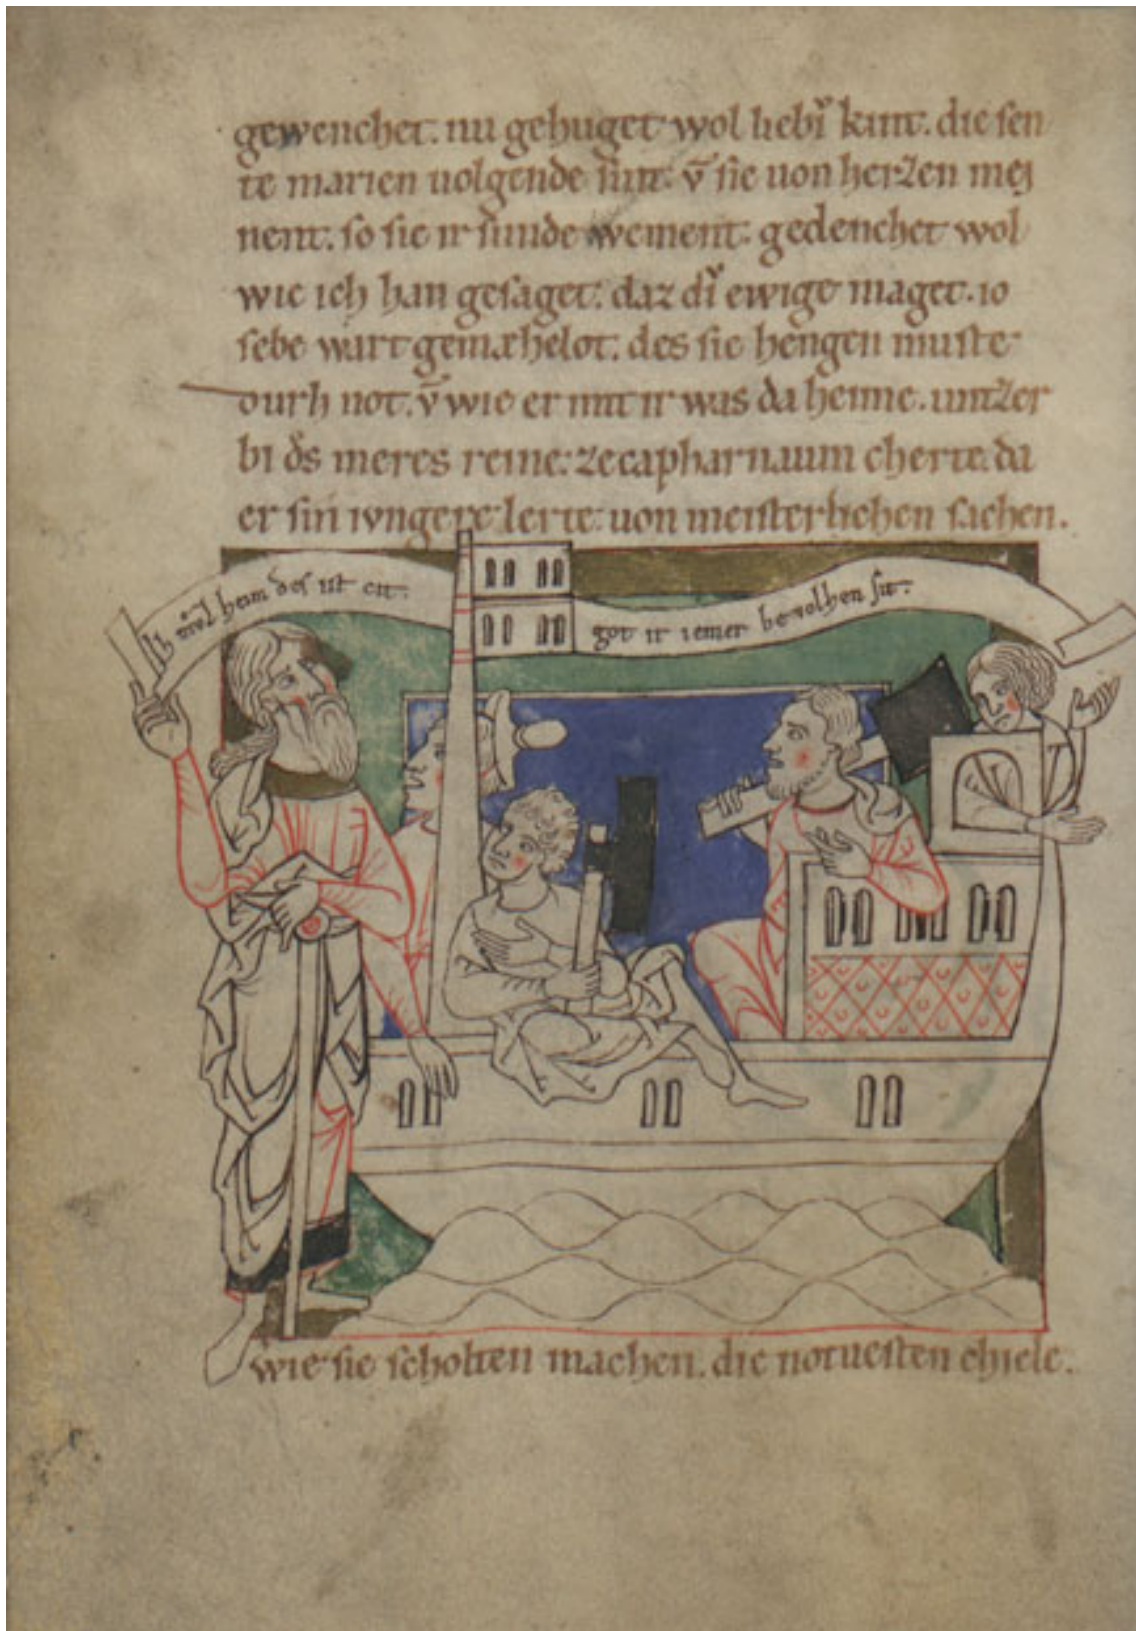 gewenchet. nu gehuget wol liebiv kint. die sen
te marien uolgende sint. v̄ sie uon herzen mei
nent. so sie ir sunde wement. gedenchet wol
wie ich han gesaget. daz div ewige maget. io
sebe wart gemæhelot. des sie hengen muste
durh not. v̄ wie er mit ir was da heime. untzer
bi ds meres reine. ze capharnaum cherte. da
er sin iungere lerte. uon meisterlichen sachen.
ih wil heim des ist cit.
got ir iemer bevolhen sit.
wie sie scholten machen. die notuesten chiele.